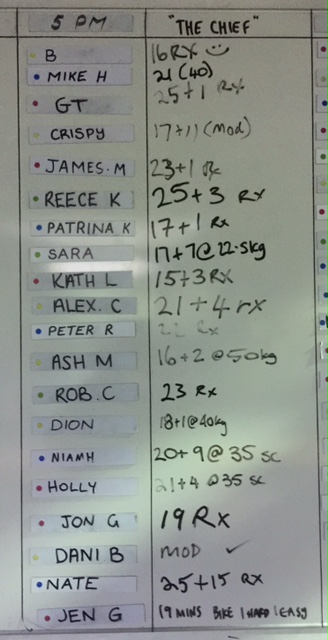 5 PM "THE CHIEF"
B 16 RX
MIKE H 21 (40)
GT 25+1 Rx
CRISPY 17+11 (mod)
JAMES.M 23+1 Rx
REECE K 25+3 RX
PATRINA K 17+1 Rx
SARA 17+7@22.5kg
KATH L 15+3 RX
ALEX. C 21+4 rx
PETER R 22 Rx
ASH M 16+2 @50kg
ROB.C 23 Rx
DION 18+1@40kg
NIAMH 20+9@35 sc
HOLLY 21+4 @35 sc
JON G 19 Rx
DANI B MOD ✓
NATE 25+15 RX
JEN G 19 MINS BIKE 1 HARD 1 EASY